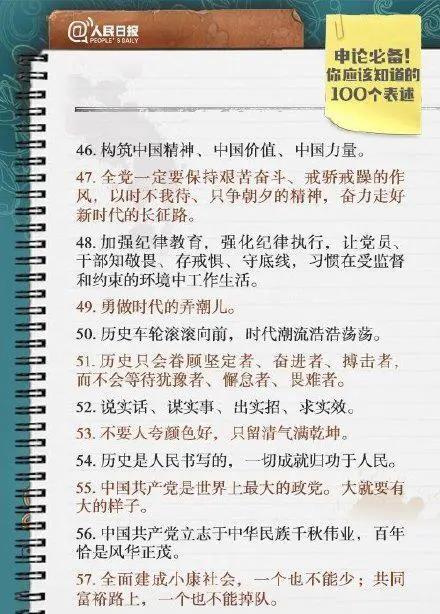 @人民日报
PEOPLE'S DAILY
申论必备!
你应该知道的
100个表述
46. 构筑中国精神、中国价值、中国力量。
47. 全党一定要保持艰苦奋斗、戒骄戒躁的作
风，以时不我待、只争朝夕的精神，奋力走好
新时代的长征路。
48. 加强纪律教育，强化纪律执行，让党员、
干部知敬畏、存戒惧、守底线，习惯在受监督
和约束的环境中工作生活。
49. 勇做时代的弄潮儿。
50. 历史车轮滚滚向前，时代潮流浩浩荡荡。
51. 历史只会眷顾坚定者、奋进者、搏击者，
而不会等待犹豫者、懈怠者、畏难者。
52. 说实话、谋实事、出实招、求实效。
53. 不要人夸颜色好，只留清气满乾坤。
54. 历史是人民书写的，一切成就归功于人民。
55. 中国共产党是世界上最大的政党。大就要有
大的样子。
56. 中国共产党立志于中华民族千秋伟业，百年
恰是风华正茂。
57. 全面建成小康社会，一个也不能少；共同
富裕路上，一个也不能掉队。